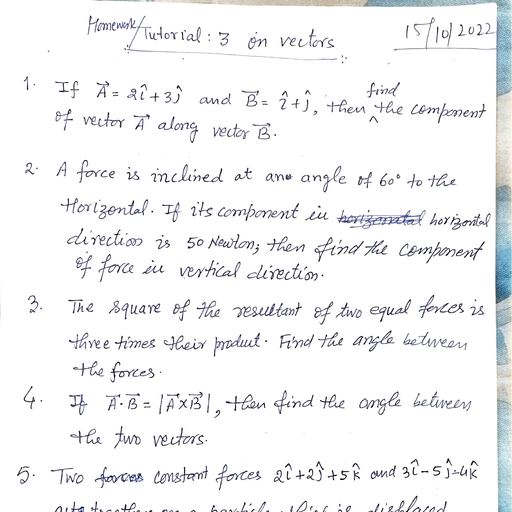 Homework/Tutorial: 3 on vectors 15/10/2022
1. If A⃗ = 2î+3ĵ and B⃗ = î+ĵ, then find the component
of vector A⃗ along vector B⃗.
2. A force is inclined at an angle of 60° to the
Horizontal. If its component in horizontal
direction is 50 Newton; then find the component
of force in vertical direction.
3. The square of the resultant of two equal forces is
three times their product. Find the angle between
the forces.
4. If A⃗·B⃗ = |A⃗×B⃗|, then find the angle between
the two vectors.
5. Two constant forces 2î+2ĵ+5k̂ and 3î-5ĵ-4k̂
displaced